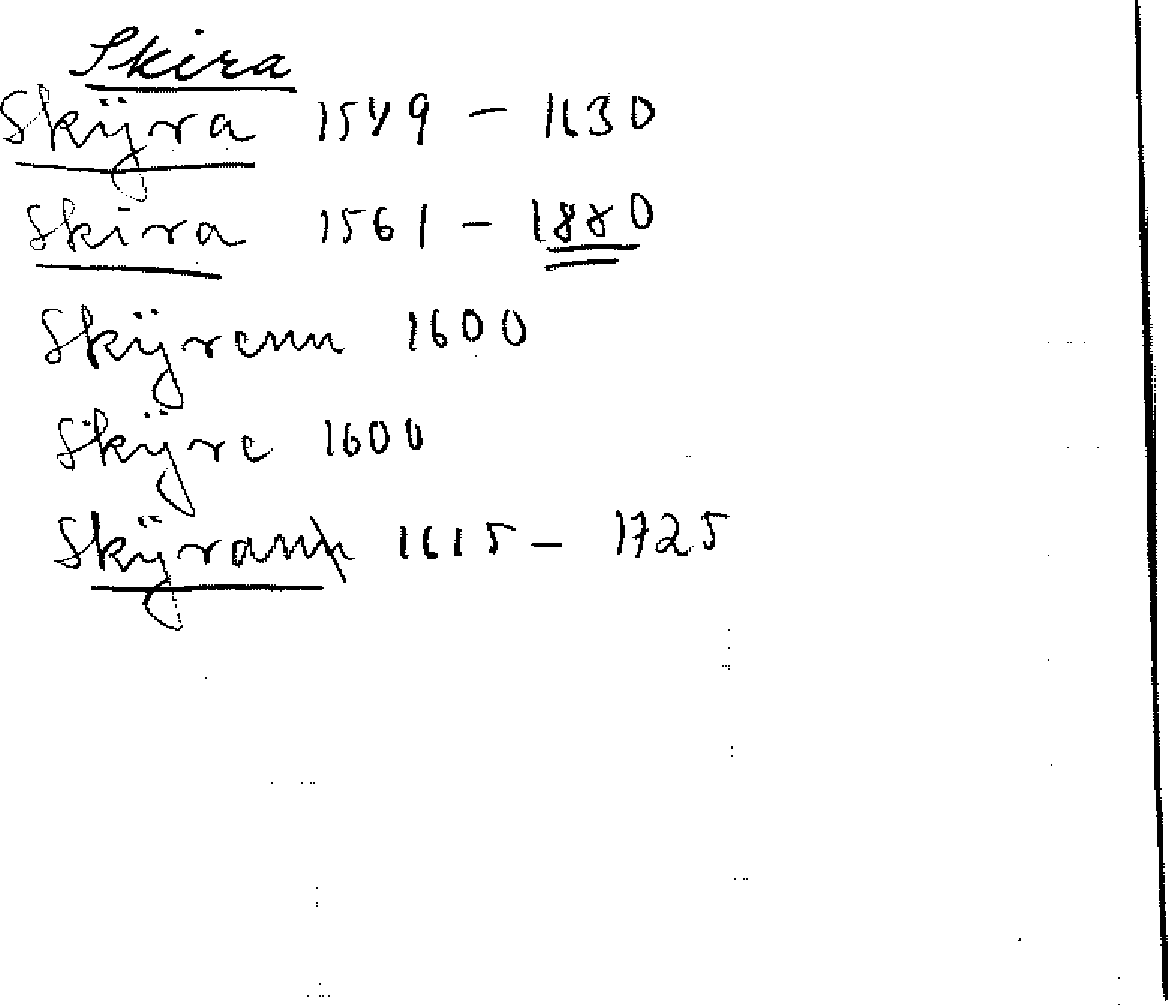 Skira
Skÿra 1549 - 1630
Skira 1561 - 1880
Skÿrann 1600
Skÿre 1600
Skÿran 1615 - 1725